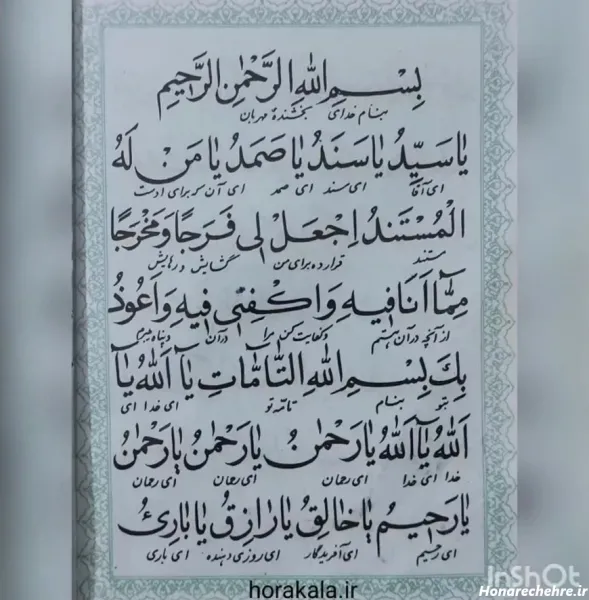 بِسْمِ اللهِ الرَّحْمٰنِ الرَّحيمِ
بنام خدای بخشنده مهربان
يٰا سَيِّدُ يٰا سَنَدُ يٰا صَمَدُ يٰا مَنْ لَهُ
ای آقا ای سند ای صمد ای آن که برای اوست
الْمُسْتَنَدُ اِجْعَلْ لِى فَرَجًا وَ مَخْرَجًا
مستند قرار ده برای من گشایش و رهایش
مِمّٰا اَنَا فيهِ وَاكْفِنى فيهِ وَاَعُوذُ
از آنچه در آن هستم و کفایت کن مرا در آن و پناه میبرم
بِكَ بِسْمِ اللهِ التّٰامّٰاتِ يٰآ اَللهُ يٰآ
بتو بنام تامّه تو ای خدا ای
اَللهُ يٰآ اَللهُ يٰا رَحْمٰنُ يٰا رَحْمٰنُ يٰا رَحْمٰنُ
خدا ای خدا ای رحمان ای رحمان ای رحمان
يٰا رَحيمُ يٰا خٰالِقُ يٰا رٰازِقُ يٰا بٰارِئُ
ای رحیم ای آفریدگار ای روزی دهنده ای باری
InShOt
horakala.ir
Honarechehre.ir